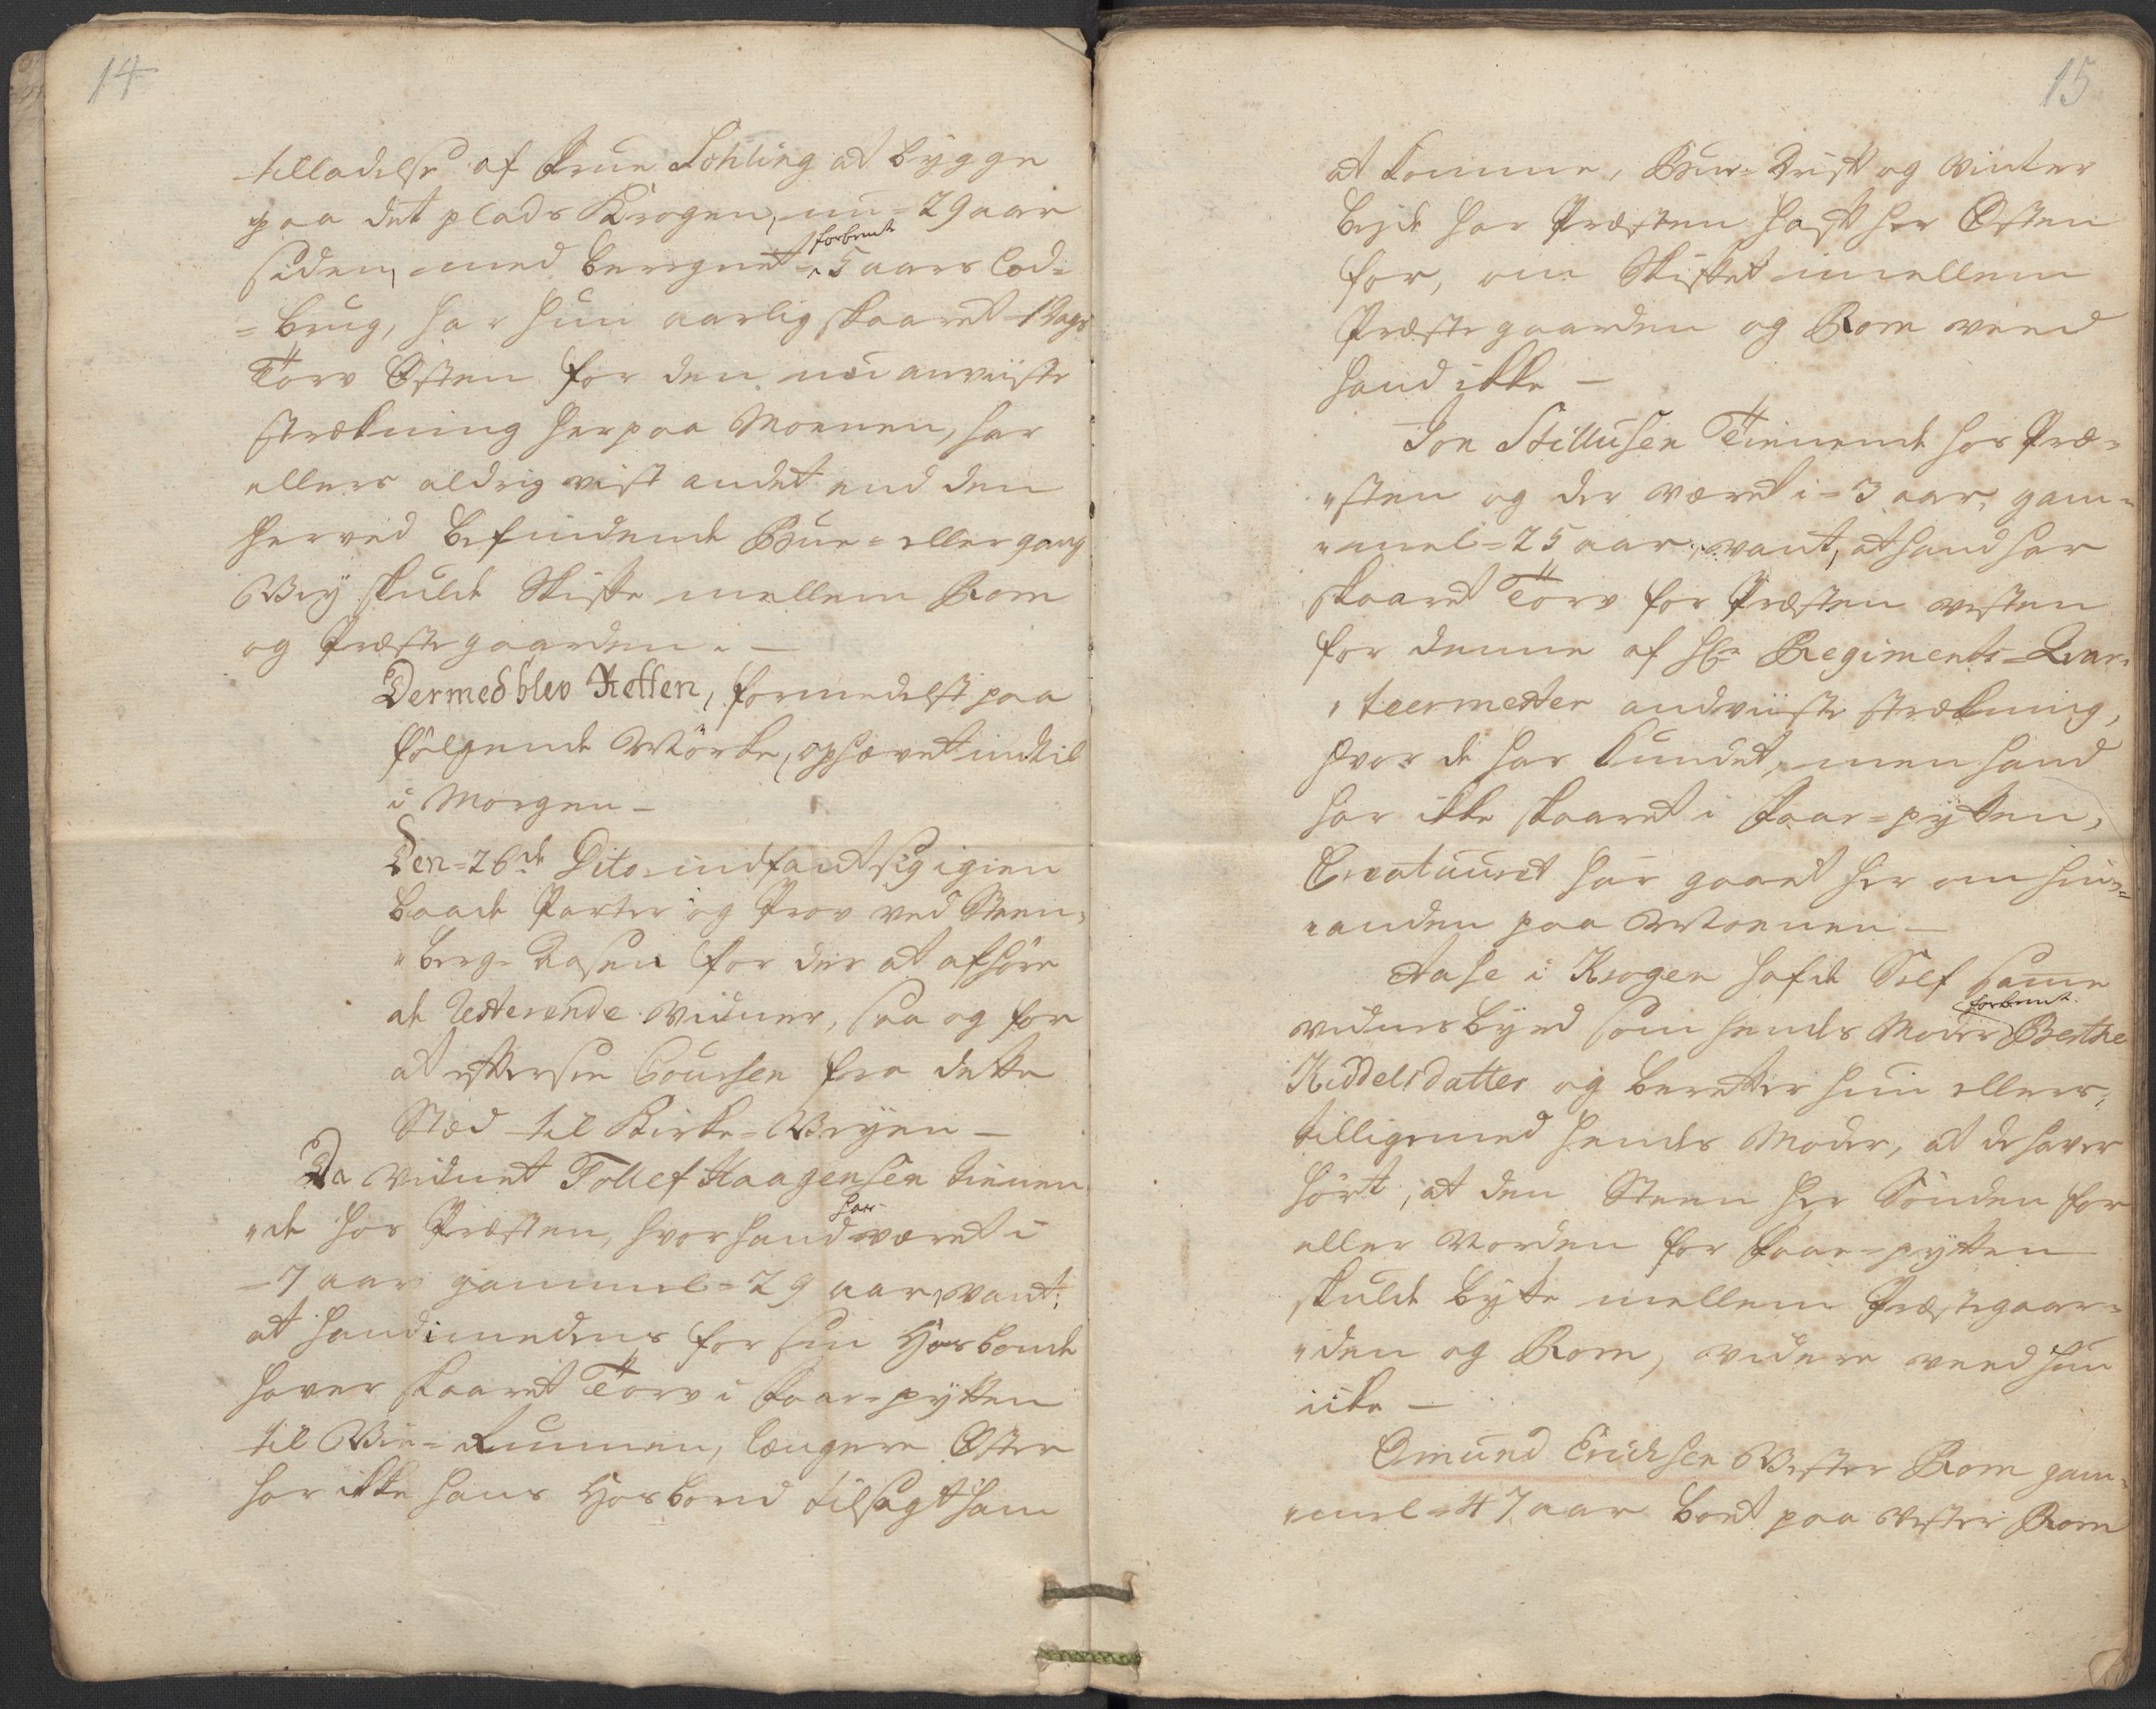 14
tilladelse af Frue Söhling at bygge
paa det plads Krogen, nu = 29 aar
siden, med beregnet = forbemte 5 aars lod=
= brug, har hun aarlig skaaret 1 Dags
Törv Östen for den nu anviiste
strækning her paa Moenen, har
ellers aldrig vist andet end den
herved befindende Bue = eller gang
Vey skulde Skifte mellem Rom
og Præstegaarden. —
Dermed blev Retten, formedelst paa
fölgende Mörke, ophævet indtil
i Morgen —
Den = 26de Dito indfandt sig igien
baade Parter og Prov ved Steen=
= berg = Aasen for der at afhöre
de Resterende Vidner, saa og for
at eftersee Coursen fra dette
Stæd til Kirke = Veyen —
Da Vidnet Tollef Haagensen tienen
= de hos Præsten, hvor hand har været i
= 7 aar gammel = 29 aar, vant,
at hand imedens for sin Hosbonde
haver skaaret Törv i Faar = pytten
til Vie = Rummen, længere Öster
har ikke hans Hosbond tilsagt ham
15
at komme, Bue = Drift og Vinter
beyde har Præsten haft her Östen
for, om Skiftet imellem
Præstegaarden og Rom veed
hand ikke —
Jon Stillufsen Tienende hos Præ=
= sten og der været i = 3 aar, gam=
= mel = 25 aar, vant, at hand har
skaaret Törv for Præsten vesten
for denne af Hr Regiments = Qvar=
= teermester andviiste strækning,
hvor de har kundet, men hand
har ikke skaaret i Faar = pytten,
Creatuuret har gaaet her om hin=
= anden paa Moenen —
Aase i Krogen hafde Self samme
vidnesbyrd som hendes Moder forbemte Berthe
Kiddelsdatter og beretter hun ellers,
tilligemed hendes Moder, at de haver
hört, at den Steen her Sönden for
eller Norden for Faar = pytten
skulde bytte mellem Præstegaar=
= den og Rom, videre veed hun
icke —
Omund Erichsen Vester Rom gam=
= mel = 47 aar boet paa Vester Rom